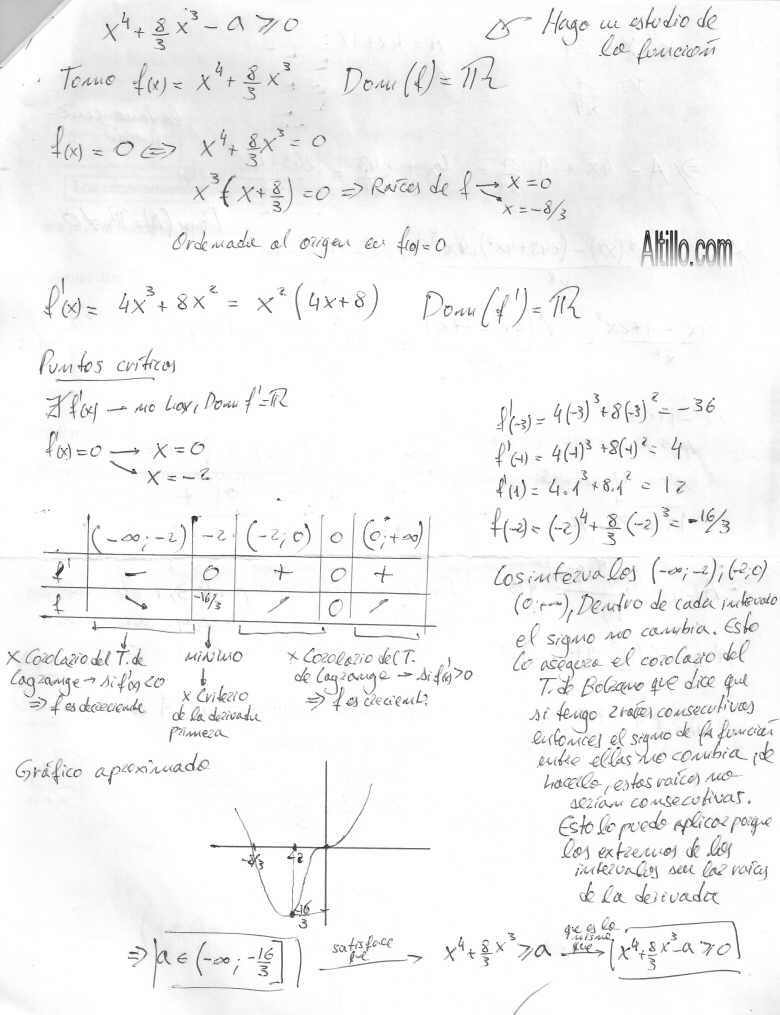 x⁴ + 8/3 x³ - a ≥ 0
Hago un estudio de
la función
Tomo f(x) = x⁴ + 8/3 x³ Dom(f) = ℝ
f(x) = 0 ⟺ x⁴ + 8/3 x³ = 0
x³(x + 8/3) = 0 ⇒ Raíces de f → x = 0
→ x = -8/3
Ordenada al origen en f(0) = 0
Altillo.com
f'(x) = 4x³ + 8x² = x²(4x+8) Dom(f') = ℝ
Puntos críticos
∄ f'(x) → no hay, Dom f' = ℝ
f'(x) = 0 → x = 0
→ x = -2
f'(-3) = 4(-3)³ + 8(-3)² = -36
f'(-1) = 4(-1)³ + 8(-1)² = 4
f'(1) = 4.1³ + 8.1² = 12
f(-2) = (-2)⁴ + 8/3 (-2)³ = -16/3
(-∞; -2) -2 (-2; 0) 0 (0; +∞)
f' - 0 + 0 +
f ↘ -16/3 ↗ 0 ↗
x Corolario del T. de
Lagrange → si f'(x) < 0
⇒ f es decreciente
MINIMO
x Criterio
de la derivada
primera
x Corolario del T.
de Lagrange → si f'(x) > 0
⇒ f es creciente
Los intervalos (-∞; -2); (-2; 0)
(0; +∞), Dentro de cada intervalo
el signo no cambia. Esto
lo asegura el corolario del
T. de Bolzano que dice que
si tengo 2 raíces consecutivas
entonces el signo de la función
entre ellas no cambia, de
hacerlo, estas raíces no
serían consecutivas.
Esto lo puedo aplicar porque
los extremos de los
intervalos son las raíces
de la derivada
Gráfico aproximado
-8/3
-2
-16/3
⇒ a ∈ (-∞; -16/3] satisface que → x⁴ + 8/3 x³ ≥ a que es lo mismo que → x⁴ + 8/3 x³ - a ≥ 0